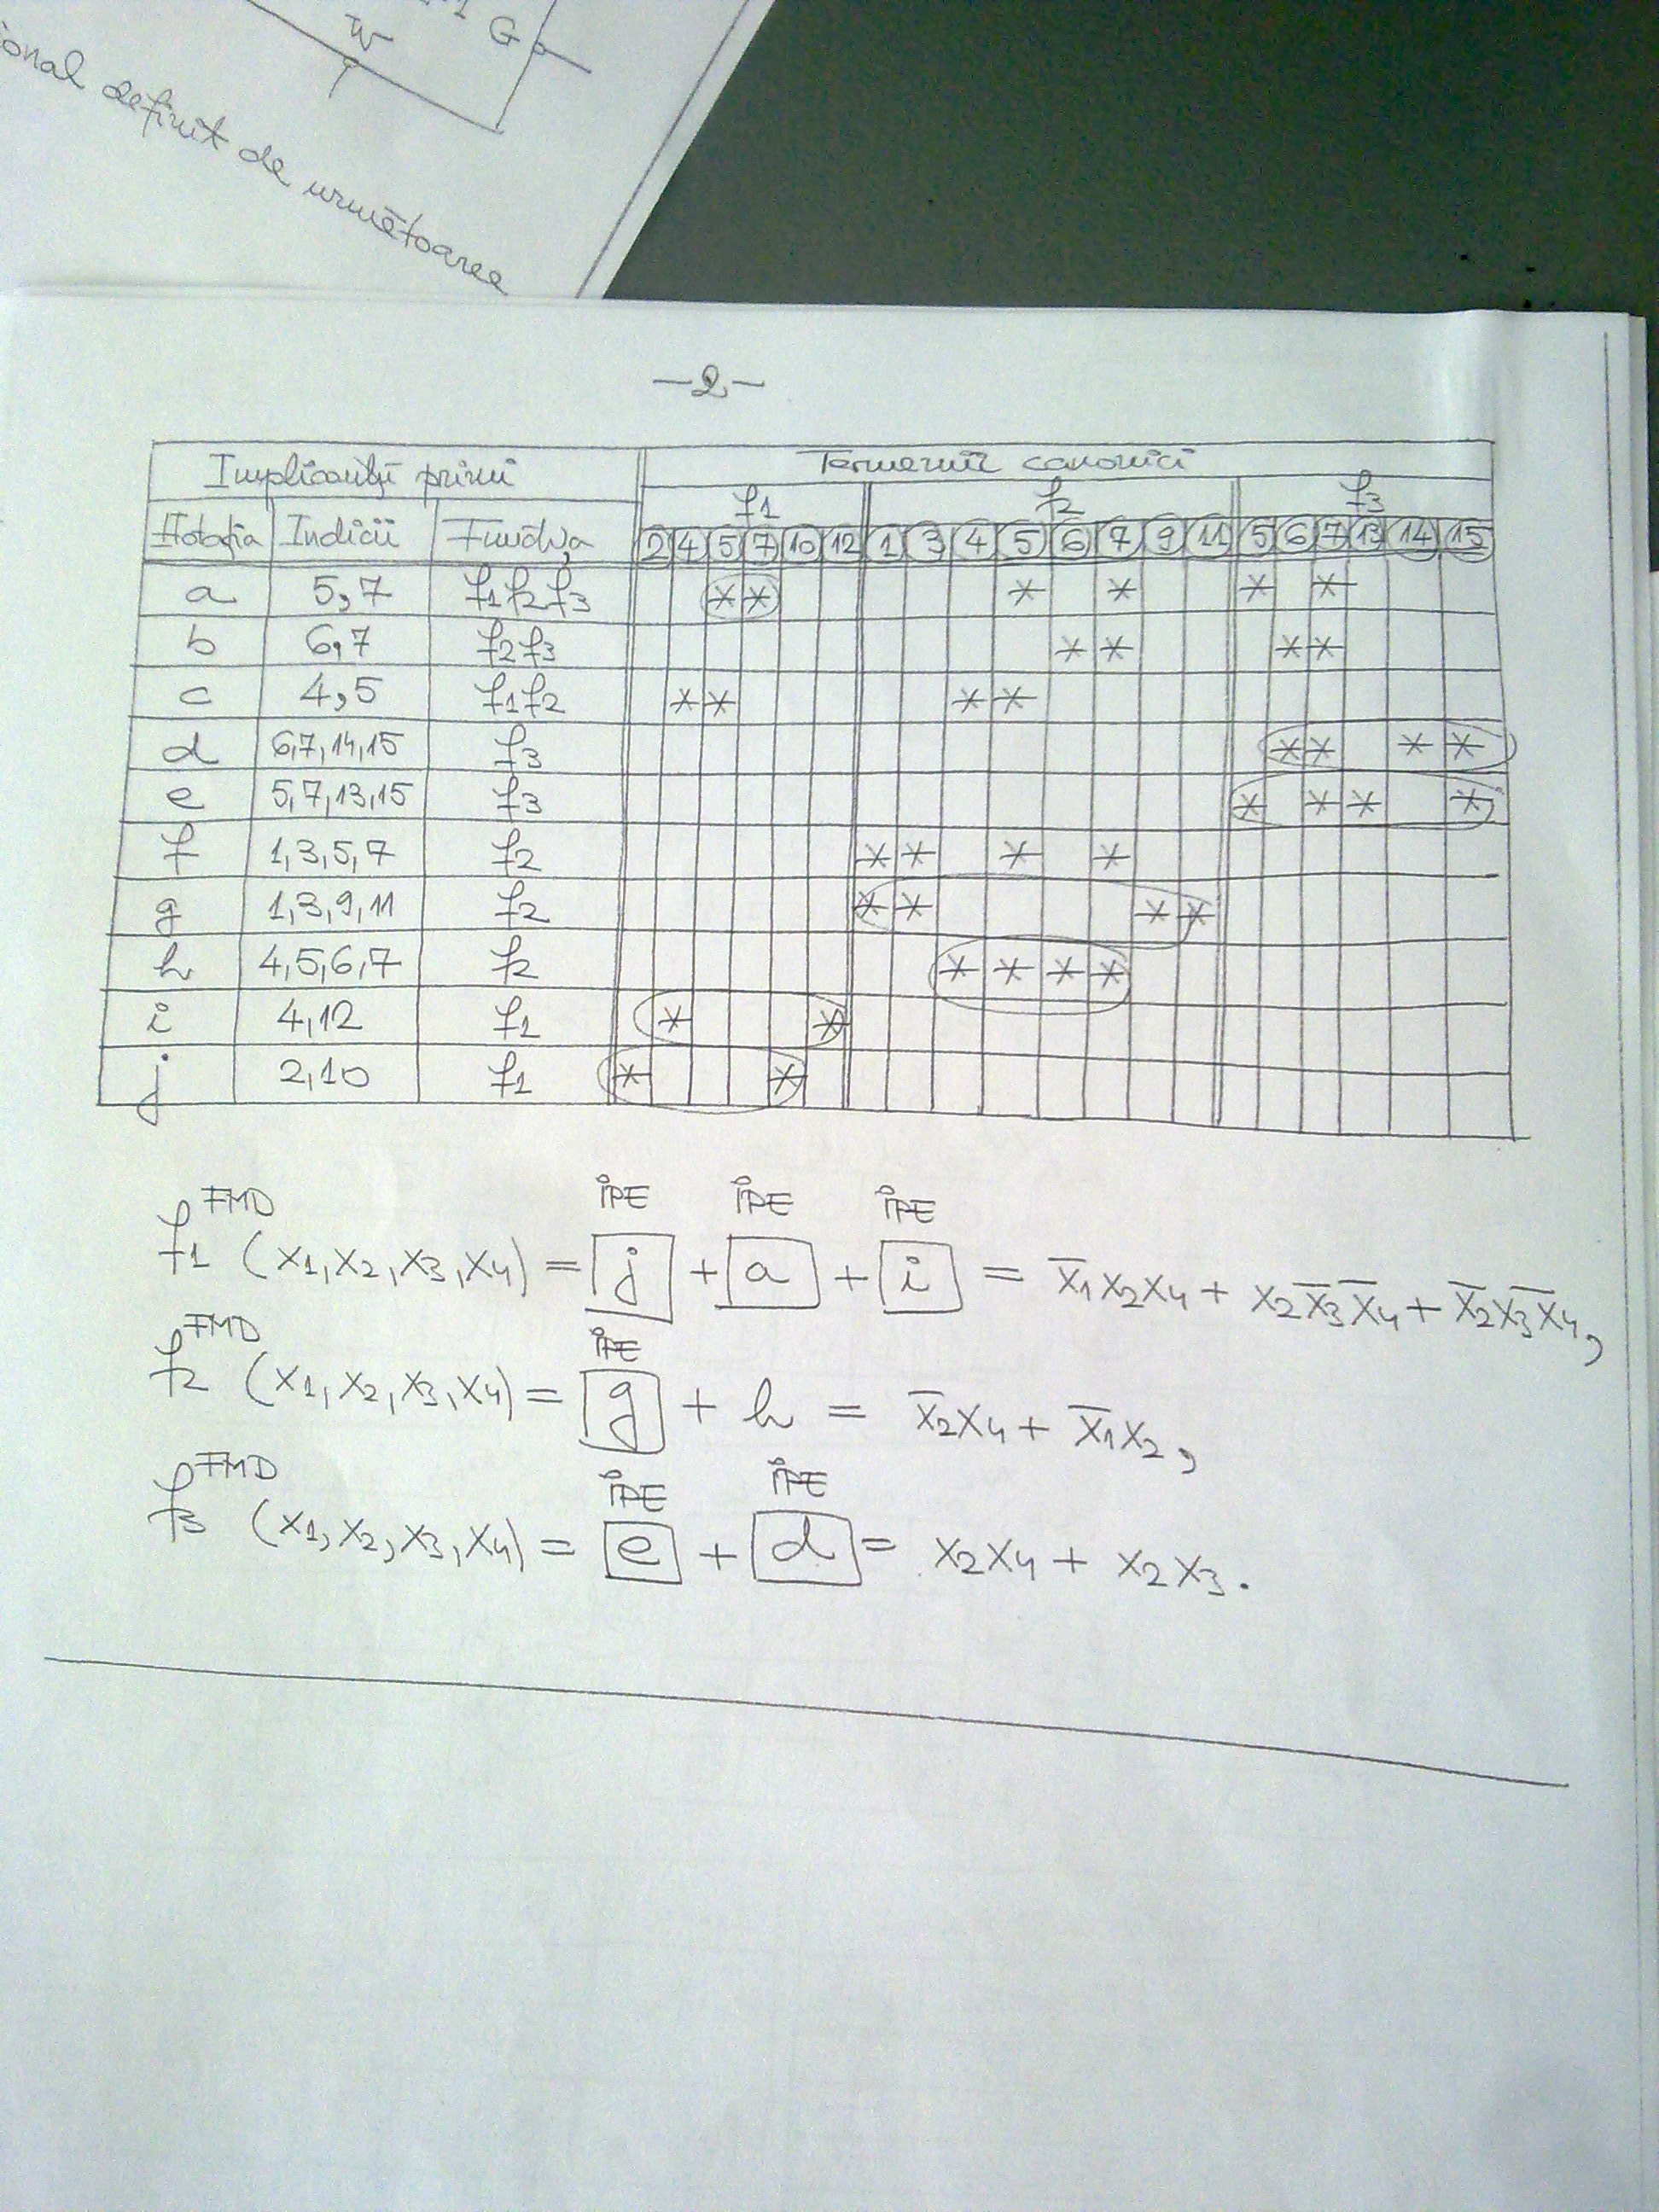 W G
onal definit de următoarea
—2—
Implicanți primi Termenii canonici
f1 f2 f3
Notația Indicii Funcția 2 4 5 7 10 12 1 3 4 5 6 7 9 11 5 6 7 13 14 15
a 5,7 f1f2f3 * * * * * *
b 6,7 f2f3 * * * *
c 4,5 f1f2 * * * *
d 6,7,14,15 f3 * * * *
e 5,7,13,15 f3 * * * *
f 1,3,5,7 f2 * * * *
g 1,3,9,11 f2 * * * *
h 4,5,6,7 f2 * * * *
i 4,12 f1 * *
j 2,10 f1 * *
FMD IPE IPE IPE
f1 (x1,x2,x3,x4) = j + a + i = x̅1x2x4 + x2x̅3x̅4 + x̅2x3x̅4,
FMD IPE
f2 (x1,x2,x3,x4) = g + h = x̅2x4 + x̅1x2,
FMD IPE IPE
f3 (x1,x2,x3,x4) = e + d = x2x4 + x2x3.